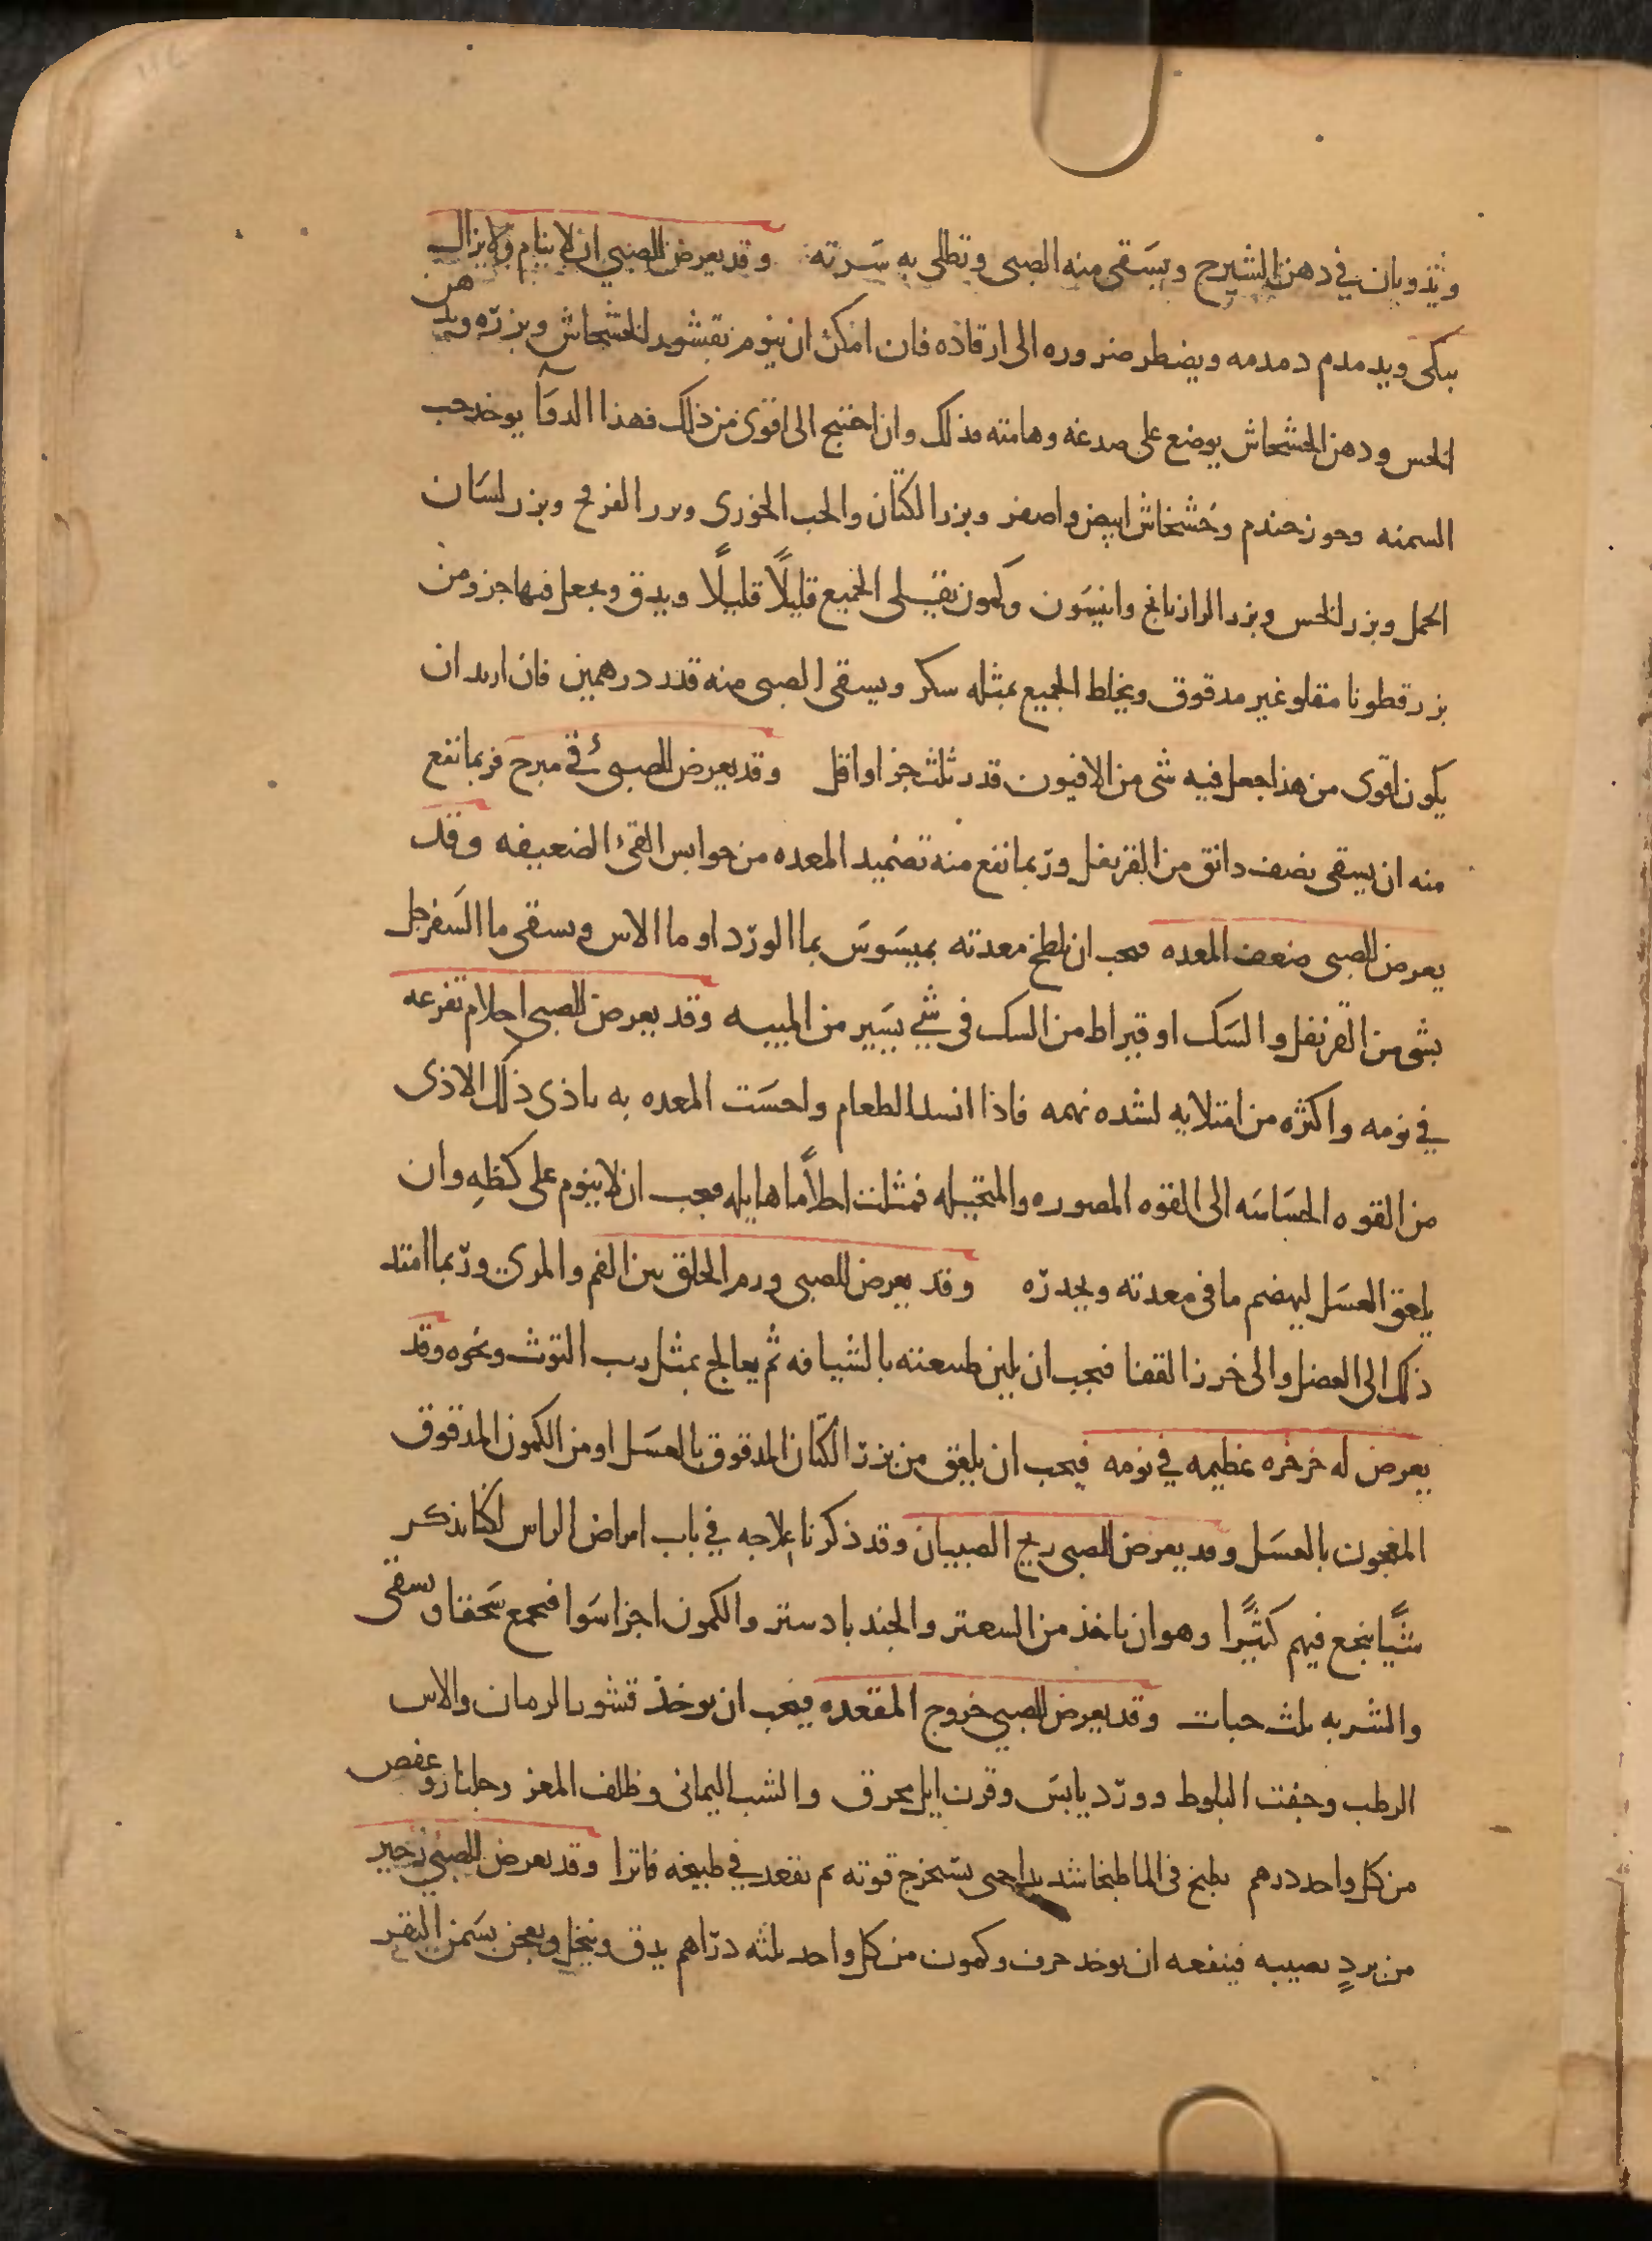 ويذوبان في دهن الشيرج ويسقى منه الصبى وتطلى به سرته وقد يعرض للصبي ان لا ينام ولا يزال
يبكى ويدمدم دمدمه ويضطر ضروره الى ارقاده فان امكن ان ينوم بقشور الخشخاش وبزره وبدهن
الخس ودهن الخشخاش يوضع على صدغه وهامته فذلك وان احتيج الى اقوى من ذلك فهذا الدوآ يوخد حب
السمنه وجوز جندم وخشخاش ابيض واصفر وبزر الكتان والحب الخوزى وبزر الفرفخ وبزر لسان
الحمل وبزر الخس وبزر الرازيانج وانيسون وكمون يقلى الجميع قليلًا قليلًا ويدق ويجعل فيها جزو من
بزر قطونا مقلو غير مدقوق ويخلط الجميع بمثله سكر ويسقى الصبى منه قدر درهمين فان اريد ان
يكون اقوى من هذا جعل فيه شى من الافيون قدر ثلث جزا او اقل وقد يعرض للصبى قئ مبرح فربما نفع
منه ان يسقى نصف دانق من القرنفل وربما نفع منه تضميد المعده من حوابس القئ الضعيفه وقد
يعرض للصبى ضعف المعده فيجب ان يلطخ معدته بميسوس بما الورد او ما الاس ويسقى ما السفرجل
بشى من القرنفل والسك او قيراط من السك في شي يسير من الميبه وقد يعرض للصبى احلام تفزعه
في نومه واكثره من امتلايه لشده نهمه فاذا انسد الطعام واحست المعده به تاذى ذلك الاذى
من القوه الحساسه الى القوه المصوره والمتخيله فمثلت احلاًما هايله فيجب ان لا ينوم على كظهِ وان
يلعق العسل ليهضم ما في معدته ويحدره وقد يعرض للصبى ورم الحلق بين الفم والمري وربما امتد
ذلك الى العضل والى خرز القفا فيجب ان يلين طبيعته بالشيافه ثم يعالج بمثل رب التوث ونحوه وقد
يعرض له خرخره عظيمه في نومه فيجب ان يلعق من بزر الكتان المدقوق بالعسل او من الكمون المدقوق
المعجون بالعسل وقد يعرض للصبى ريح الصبيان وقد ذكرنا علاجه في باب امراض الراس لكنا نذكر
شيًا ينجع فيهم كثيرًا وهو ان ياخذ من السعتر والجند بادستر والكمون اجزا سوا فيجمع سحقا ويسقى
والشربه ثلث حبات وقد يعرض للصبي خروج المقعده فيجب ان يوخذ قشور الرمان والاس
الرطب وجفت البلوط وورد يابس وقرن ايل محرق والشب اليمانى وظلف المعز وجلنار وعفص
من كل واحد درهم يطبخ في الما طبخا شديدا حتى يستخرج قوته ثم يقعد في طبيخه فاترا وقد يعرض للصبي زحير
من بردٍ يصيبه فينفعه ان يوخد حرف وكمون من كل واحد ثلثه دراهم يدق وينخل ويعجن بسمن البقر